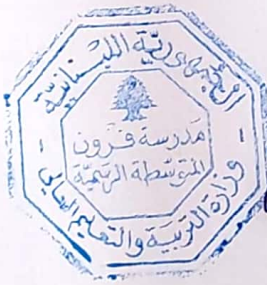 الجمهورية اللبنانية
مدرسة فرون
المتوسطة الرسمية
وزارة التربية والتعليم العالي